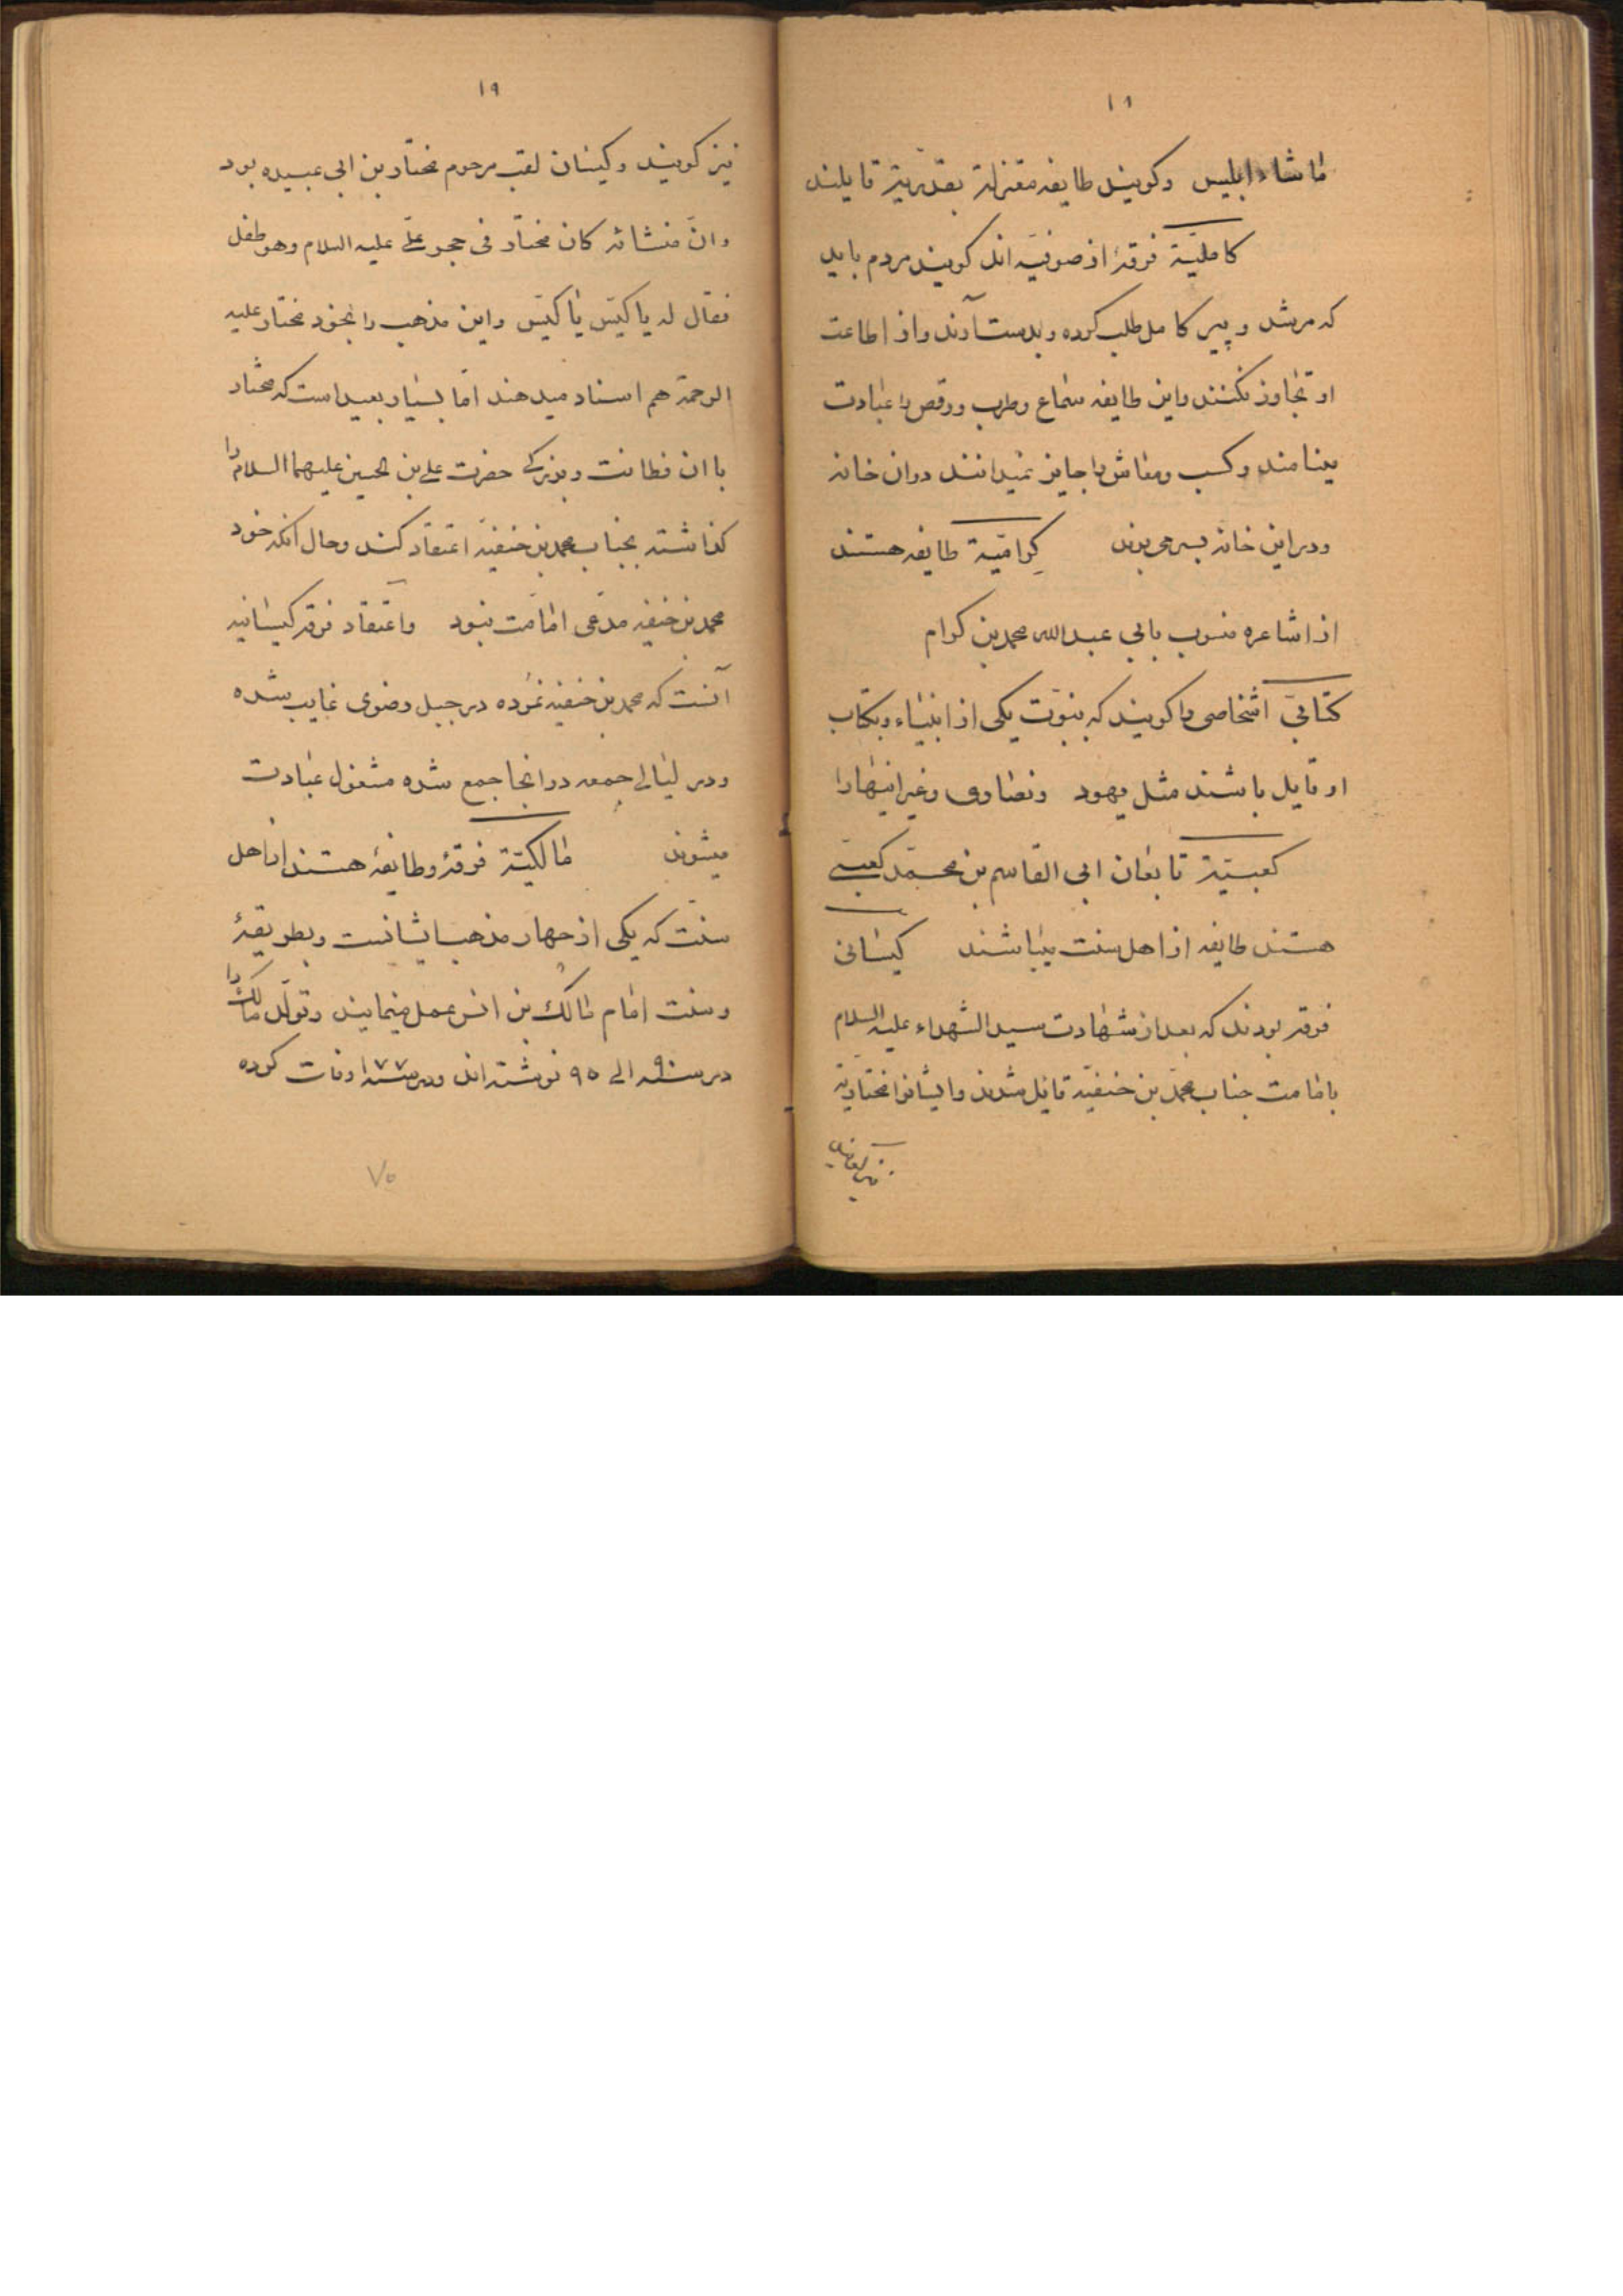 ١٨
ماشاء ابلیس وکویند طایفه معتزلة بقدریة قایلند
کاملیّة فرقهٔ از صوفیّه اند کویند مردم باید
که مرشد و پیر کامل طلب کرده و بدست آرند و از اطاعت
او تجاوز نکنند و این طایفه سماع و طرب و رقص را عبادت
مینامند و کسب و معاش را جایز نمیدانند در ان خانه
و در این خانه بسر می برند کِرامّیة طایفه هستند
از اشاعره منسوب بابی عبدالله محمد بن کرام
کتابیّ اشخاصی را کویند که بنبوّت یکی از انبیاء و بکتاب
او قایل باشند مثل یهود و نصاری و غیر اینها را
کعبیّة تابعان ابی القاسم بن محمّد کعبی
هستند طایفه از اهل سنت میباشند کیسانی
فرقه بودند که بعد از شهادت سید الشهداء علیه السلام
بامامت جناب محمّد بن حنفیّه قائل شدند و ایشانرا مختاریّة
نیز کویند
١٩
نیز کویند و کیسان لقب مرحوم مختار بن ابی عبیده بود
وانّ منشائه کان مختار فی حجر علیّ علیه السلام وهو طفل
فقال له یا کیّس یا کیّس و این مذهب را بخود مختار علیه
الرحمة هم اسناد میدهند امّا بسیار بعید است که مختار
با ان فطانت و بزرکی حضرت علی بن الحسین علیهما السلام را
کذاشته بجناب محمد بن حنفیّه اعتقاد کند و حال آنکه خود
محمد بن حنفیه مدّعی امامت نبود و اعتقاد فرقه کیسانیه
آنست که محمد بن حنفیه نمرده در جبل رضوی غایب شده
و در لیالی جمعه در انجا جمع شده مشغول عبادت
میشوند مالکیّة فرقهٔ و طایفهٔ هستند از اهل
سنت که یکی از چهار مذهب ایشانست و بطریقهٔ
و سنت امام مالک بن انس عمل مینمایند و تولّد مالک را
در سنه ٩٠ الی ٩٥ نوشته اند و در سنه ١٧٧ وفات کرده
٧٥